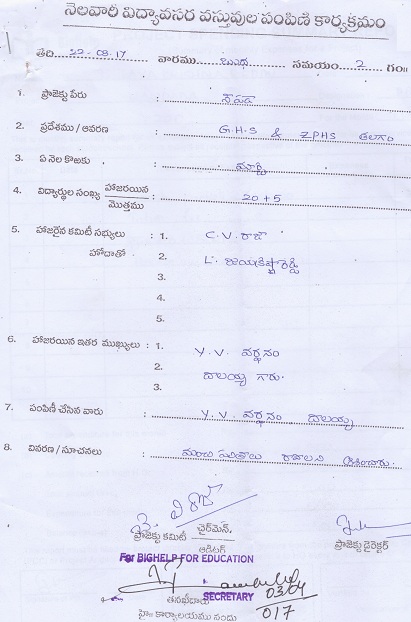 నెలవారీ విద్యావసర వస్తువుల పంపిణీ కార్యక్రమం
తేది 22-03.17 వారము బుధ సమయం 2 గం॥
1. ప్రాజెక్టు పేరు :
2. ప్రదేశము / ఆవరణ : G.H.S & ZPHS
3. ఏ నెల కొఱకు : మార్చి
4. విద్యార్థుల సంఖ్య హాజరయిన / మొత్తము : 20+5
5. హాజరైన కమిటీ సభ్యులు : 1. C.V. రాజా
హోదాతో 2. L. జయకృష్ణారెడ్డి
3.
4.
5.
6. హాజరయిన ఇతర ముఖ్యులు : 1. Y.V. వర్ధనం
2. దాలయ్య గారు.
3.
7. పంపిణీ చేసిన వారు : Y.V. వర్ధనం దాలయ్య
8. వివరణ / సూచనలు : మంచి ఫలితాలు రావాలని
ప్రాజెక్టు కమిటీ చైర్‌మెన్, ప్రాజెక్టు డైరెక్టర్
ఆడిటర్
For BIGHELP FOR EDUCATION
SECRETARY
03/04
017
కార్యాలయము నందు